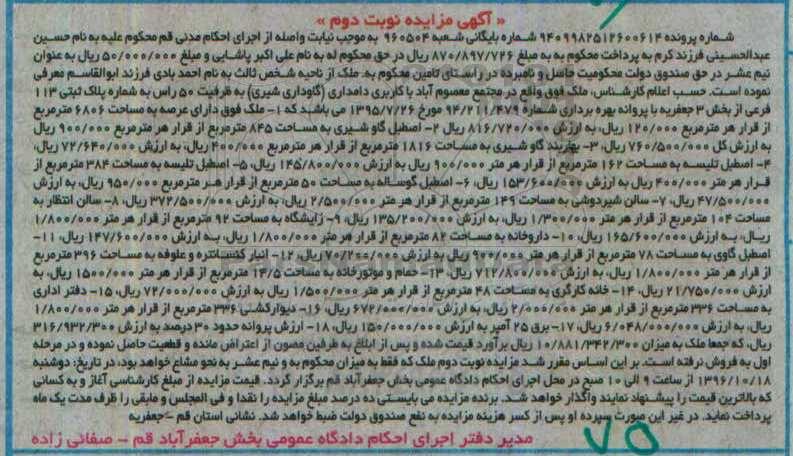 « آگهی مزایده نوبت دوم »
شماره پرونده ۹۴۰۹۹۸۲۵۱۲۶۰۰۶۱۴ شماره بایگانی شعبه ۹۶۰۵۰۴ به موجب نیابت واصله از اجرای احکام مدنی قم محکوم علیه به نام حسین
عبدالحسینی فرزند کرم به پرداخت محکوم به به مبلغ ۸۷۰/۸۹۷/۷۲۶ ریال در حق محکوم له به نام علی اکبر پاشایی و مبلغ ۵۰/۰۰۰/۰۰۰ ریال به عنوان
نیم عشر در حق صندوق دولت محکومیت حاصل و نامبرده در راستای تامین محکوم به، ملک از ناحیه شخص ثالث به نام احمد بادی فرزند ابوالقاسم معرفی
نموده است. حسب اعلام کارشناس، ملک فوق واقع در مجتمع معصوم آباد با کاربری دامداری (گاوداری شیری) به ظرفیت ۵۰ راس به شماره پلاک ثبتی ۱۱۳
فرعی از بخش ۳ جعفریه با پروانه بهره برداری شماره ۹۴/۲۱۱/۴۷۹ مورخ ۱۳۹۵/۷/۲۶ می باشد که ۱- ملک فوق دارای عرصه به مساحت ۶۸۰۶ مترمربع
از قرار هر مترمربع ۱۲۰/۰۰۰ ریال، به ارزش ۸۱۶/۷۲۰/۰۰۰ ریال ۲- اصطبل گاو شیری به مساحت ۸۴۵ مترمربع از قرار هر مترمربع ۹۰۰/۰۰۰ ریال
به ارزش کل ۷۶۰/۵۰۰/۰۰۰ ریال، ۳- بهاربند گاو شیری به مساحت ۱۸۱۶ مترمربع از قرار هر مترمربع ۴۰۰/۰۰۰ ریال، به ارزش ۷۲/۶۴۰/۰۰۰ ریال،
۴- اصطبل تلیسه به مساحت ۱۶۲ مترمربع از قرار هر متر ۹۰۰/۰۰۰ ریال به ارزش ۱۴۵/۸۰۰/۰۰۰ ریال، ۵- اصطبل تلیسه به مساحت ۳۸۴ مترمربع از
قرار هر متر ۴۰۰/۰۰۰ ریال به ارزش ۱۵۳/۶۰۰/۰۰۰ ریال، ۶- اصطبل گوساله به مساحت ۵۰ مترمربع از قرار هر مترمربع ۹۵۰/۰۰۰ ریال، به ارزش
۴۷/۵۰۰/۰۰۰ ریال، ۷- سالن شیردوشی به مساحت ۱۴۹ مترمربع از قرار هر متر ۲/۵۰۰/۰۰۰ ریال، به ارزش ۳۷۲/۵۰۰/۰۰۰ ریال، ۸- سالن انتظار به
مساحت ۱۰۴ مترمربع از قرار هر متر ۱/۳۰۰/۰۰۰ ریال، به ارزش ۱۳۵/۲۰۰/۰۰۰ ریال، ۹- زایشگاه به مساحت ۹۲ مترمربع از قرار هر متر ۱/۸۰۰/۰۰۰
ریال، به ارزش ۱۶۵/۶۰۰/۰۰۰ ریال، ۱۰- داروخانه به مساحت ۸۲ مترمربع از قرار هر متر ۱/۸۰۰/۰۰۰ ریال، به ارزش ۱۴۷/۶۰۰/۰۰۰ ریال، ۱۱-
اصطبل گاوی به مساحت ۷۸ مترمربع از قرار هر متر ۹۰۰/۰۰۰ ریال به ارزش ۷۰/۲۰۰/۰۰۰ ریال، ۱۲- انبار کنسانتره و علوفه به مساحت ۳۹۶ مترمربع
از قرار هر متر ۱/۸۰۰/۰۰۰ ریال، به ارزش ۷۱۲/۸۰۰/۰۰۰ ریال، ۱۳- حمام و موتورخانه به مساحت ۱۴/۵ مترمربع از قرار هر متر ۱۵۰۰/۰۰۰ ریال، به
ارزش ۲۱/۷۵۰/۰۰۰ ریال، ۱۴- خانه کارگری به مساحت ۴۸ مترمربع از قرار هر متر ۱/۵۰۰/۰۰۰ ریال به ارزش ۷۲/۰۰۰/۰۰۰ ریال، ۱۵- دفتر اداری
به مساحت ۳۳۶ مترمربع از قرار هر متر ۲/۰۰۰/۰۰۰ ریال، به ارزش ۶۷۲/۰۰۰/۰۰۰ ریال، ۱۶- دیوارکشی ۳۳۶ مترمربع از قرار هر متر ۱/۸۰۰/۰۰۰
ریال، به ارزش ۶/۰۴۸/۰۰۰/۰۰۰ ریال، ۱۷- برق ۲۵ آمپر به ارزش ۱۵۰/۰۰۰/۰۰۰ ریال، ۱۸- ارزش پروانه حدود ۳۰ درصد به ارزش ۳۱۶/۹۳۲/۳۰۰
ریال، که جمعا ملک به میزان ۱۰/۸۸۱/۳۴۲/۳۰۰ ریال برآورد قیمت شده و پس از ابلاغ به طرفین مصون از اعتراض مانده و قطعیت حاصل نموده و در مرحله
اول به فروش نرفته است. بر این اساس مقرر شد مزایده نوبت دوم ملک که فقط به میزان محکوم به و نیم عشر به نحو مشاع خواهد بود، در تاریخ: دوشنبه
۱۳۹۶/۱۰/۱۸ از ساعت ۹ الی ۱۰ صبح در محل اجرای احکام دادگاه عمومی بخش جعفرآباد قم برگزار گردد. قیمت مزایده از مبلغ کارشناسی آغاز و به کسانی
که بالاترین قیمت را پیشنهاد نمایند واگذار خواهد شد. برنده مزایده می بایستی ده درصد مبلغ مزایده را نقدا و فی المجلس و مابقی را ظرف مدت یک ماه
پرداخت نماید. در غیر این صورت سپرده او پس از کسر هزینه مزایده به نفع صندوق دولت ضبط خواهد شد. نشانی استان قم -جعفریه
مدیر دفتر اجرای احکام دادگاه عمومی بخش جعفرآباد قم - صفائی زاده
۷۵